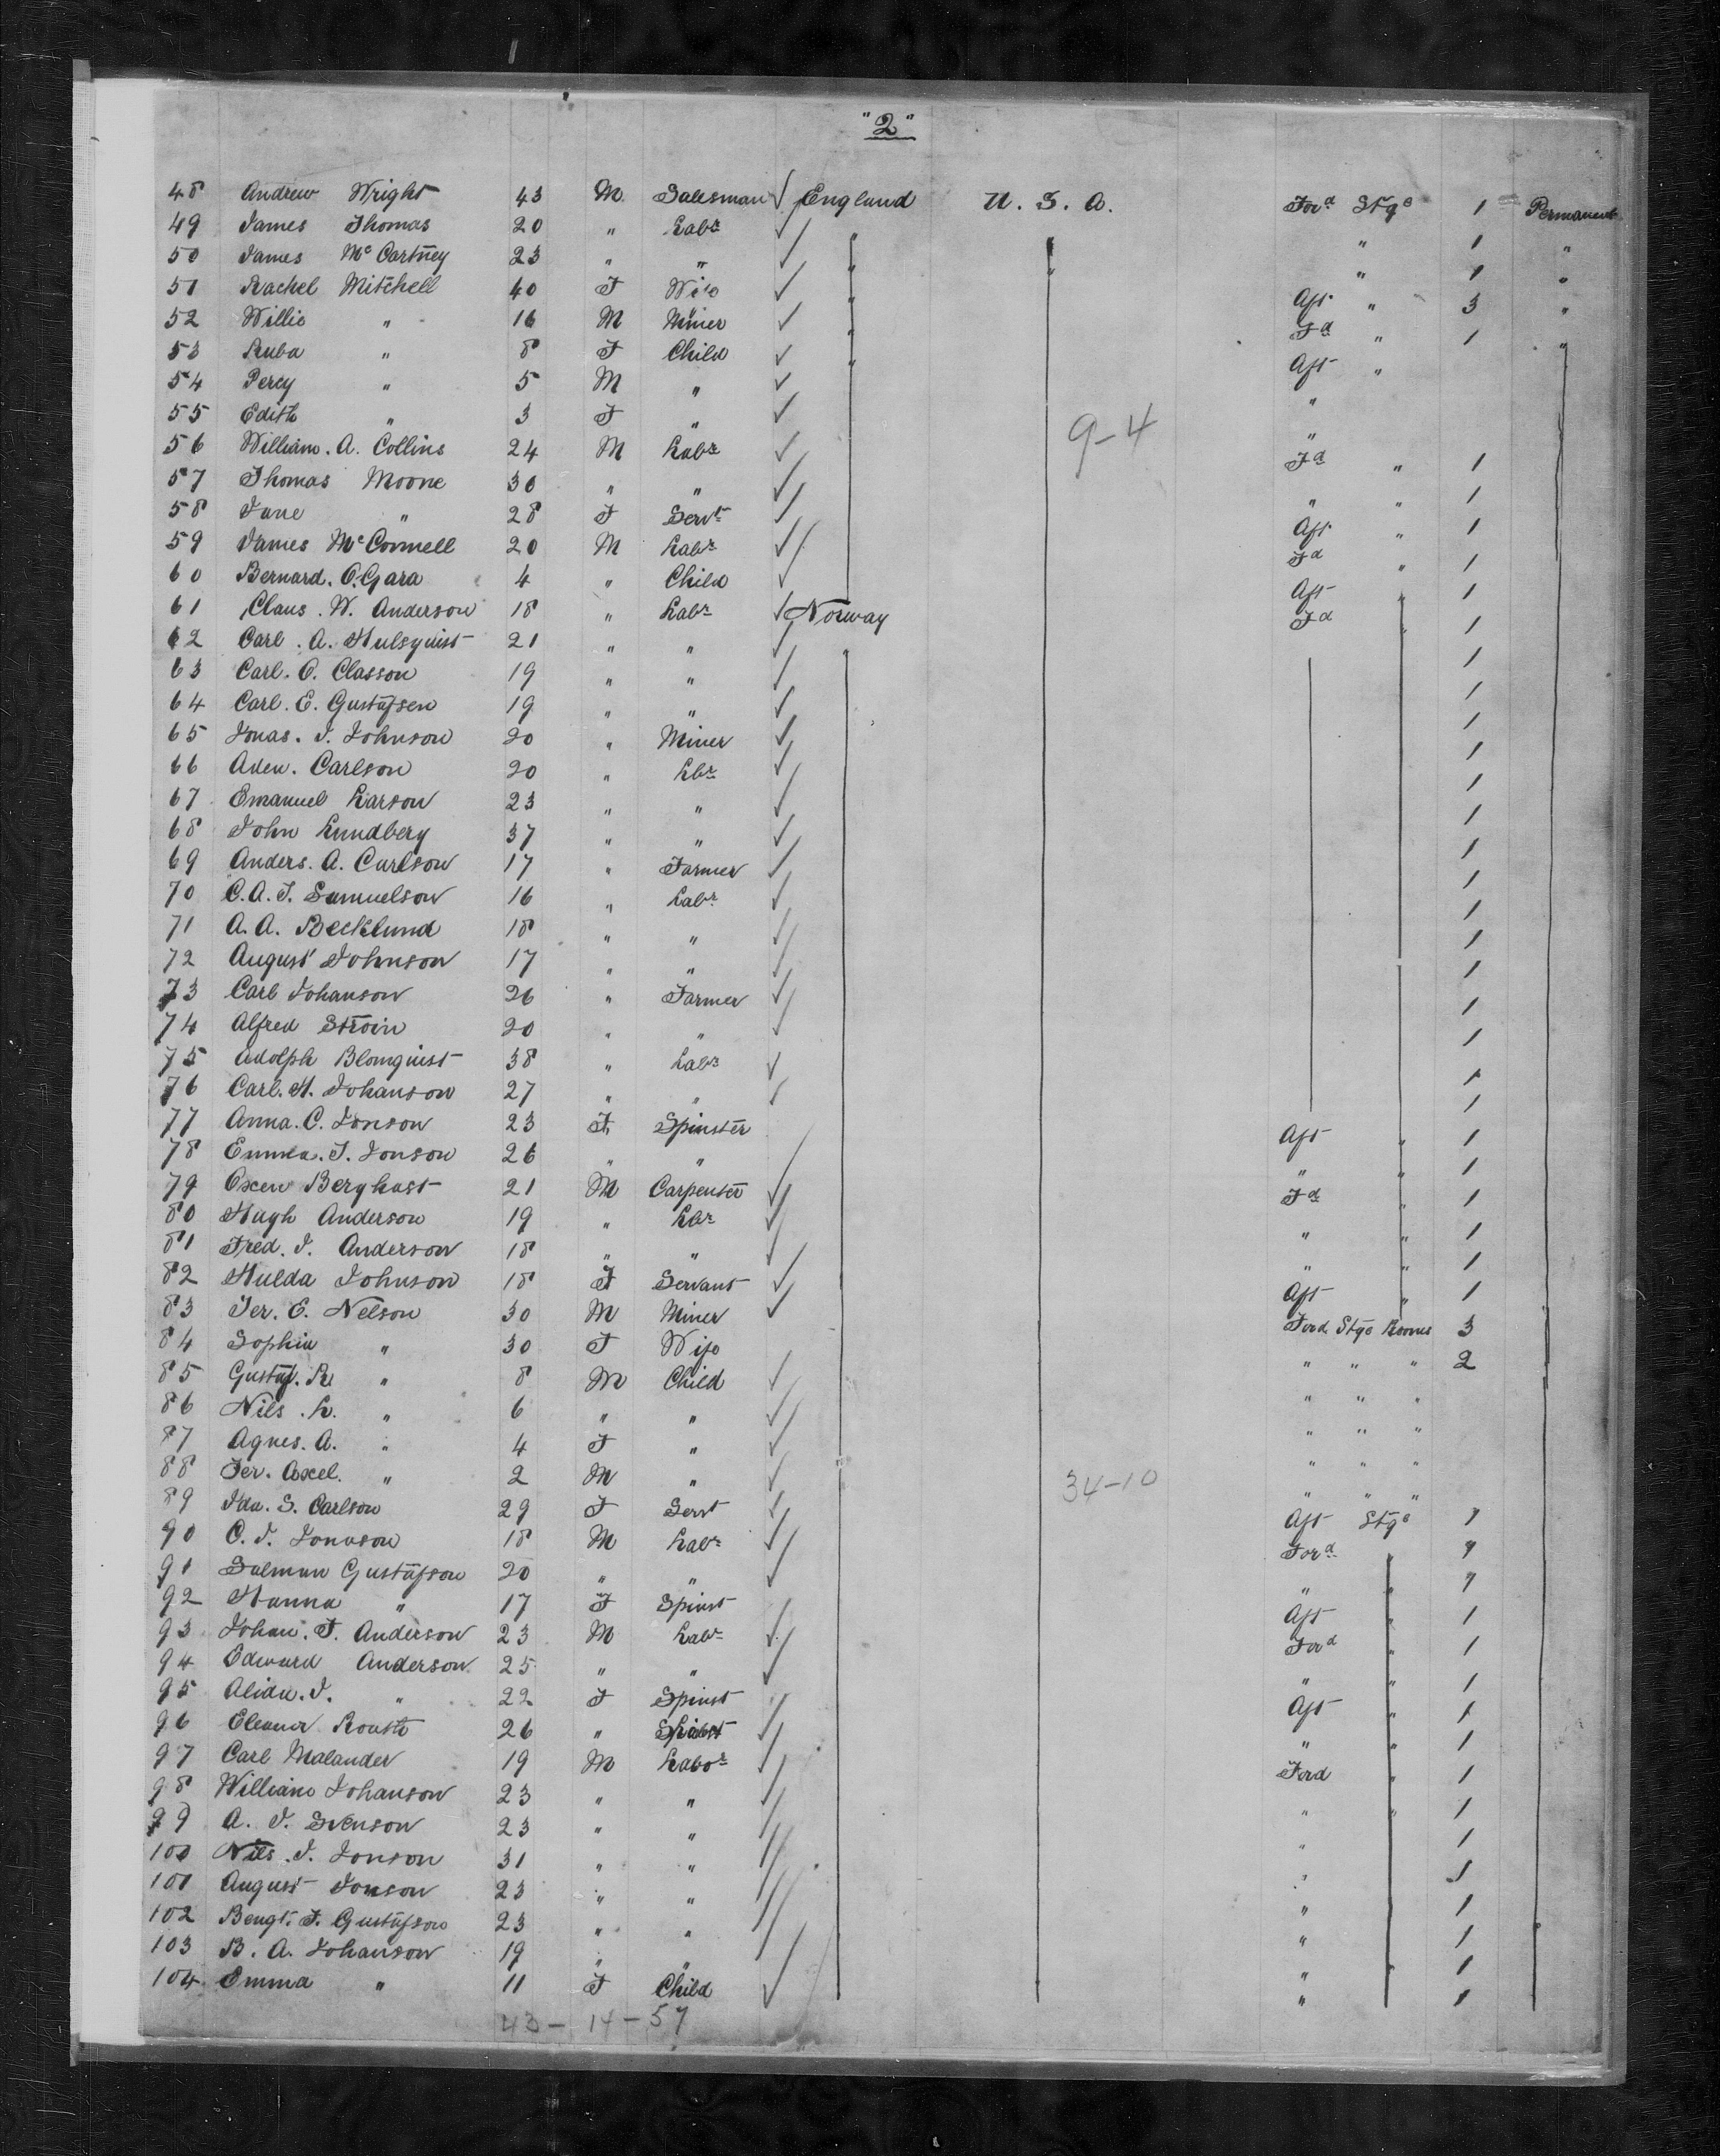 "2"
48 Andrew Wright 43 M. Salesman England U. S. A. Ford Stge 1 Permanent
49 James Thomas 20 " Labr " " " 1 "
50 James McCartney 23 " " " " " 1 "
51 Rachel Mitchell 40 F Wife " Aft " 3 "
52 Willie " 16 M Miner " Fd " 1 "
53 Ruba " 8 F Child " Aft "
54 Percy " 5 M " "
55 Edith " 3 F " "
9-4
56 William. A. Collins 24 M Labr Fd " 1
57 Thomas Moone 30 " " " " 1
58 Jane " 28 F Servt Aft " 1
59 James McConnell 20 M Labr Fd " 1
60 Bernard. O.Gara 4 " Child Aft " 1
61 Claus. W. Anderson 18 " Labr Norway Fd " 1
62 Carl. A. Hulsquist 21 " " " 1
63 Carl. O. Classon 19 " " 1
64 Carl. E. Gustafsen 19 " " 1
65 Jonas. J. Johnson 20 " Miner 1
66 Aden. Carlson 20 " Lbr 1
67 Emanuel Larson 23 " " 1
68 John Lundberg 37 " " 1
69 Anders. A. Carlson 17 " Farmer 1
70 C. A. F. Samuelson 16 " Labr 1
71 A. A. Becklund 18 " " 1
72 August Johnson 17 " " 1
73 Carl Johanson 26 " Farmer 1
74 Alfred Stroin 20 " " 1
75 Adolph Blomquist 38 " Labr 1
76 Carl. H. Johanson 27 " " 1
77 Anna. C. Jonson 23 F. Spinster Aft " 1
78 Emma. F. Jonson 26 " " " " 1
79 Oxen Berghast 21 M Carpenter Fd " 1
80 Hugh Anderson 19 " Lbr " " 1
81 Fred. J. Anderson 18 " " " " 1
82 Hulda Johnson 18 F Servant Aft " 1
83 Jer. E. Nelson 30 M Miner Ford. Stge Rooms 3
84 Sophia " 30 F Wife " " " 2
85 Gustaf. R " 8 M Child " " "
86 Nils. L. " 6 " " " " "
87 Agnes. A. " 4 F " " " "
88 Jer. Axel. " 2 M " " " "
34-10
89 Ida. S. Carlson 29 F Servt Aft Stge 1
90 C. J. Jonnson 18 M Labr Ford " 1
91 Salmun Gustafson 20 " " " " 1
92 Hanna " 17 F Spinst Aft " 1
93 Johan. F. Anderson 23 M Labr Ford " 1
94 Edward Anderson 25 " " " " 1
95 Alida. J. " 22 F Spinst Aft " 1
96 Eleanor 26 " " " 1
97 Carl Malander 19 M Labor Ford " 1
98 William Johanson 23 " " " " 1
99 A. J. Svenson 23 " " " 1
100 Nils. J. Jonson 31 " " " 1
101 August Jonson 23 " " " 1
102 Bengt. F. Gustafson 23 " " " 1
103 B. A. Johanson 19 " " " " 1
104 Emma " 11 F Child " 1
43 - 14 - 57